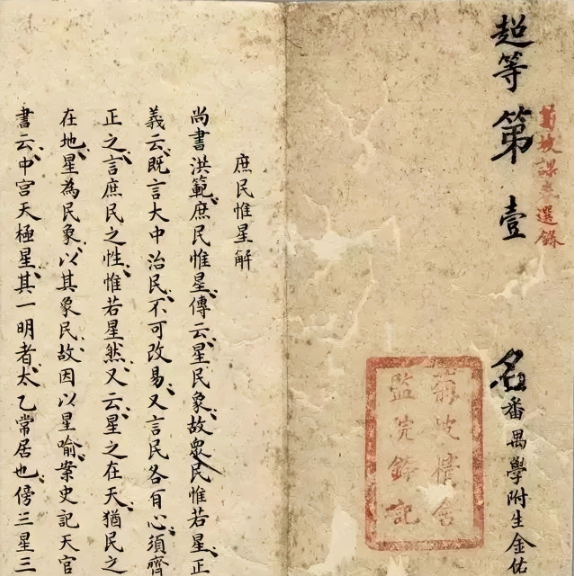 菊坡課卷選錄
超等第壹名番禺學附生金佑
菊坡精舍
監院鈐記
庶民惟星解
尚書洪範庶民惟星傳云星民象故衆民惟若星正
義云既言大中治民不可改易又言民各有心須齊
正之言庶民之性惟若星然又云星之在天猶民之
在地星為民象以其象民故因以星喻案史記天官
書云中宮天極星其一明者太乙常居也傍三星三